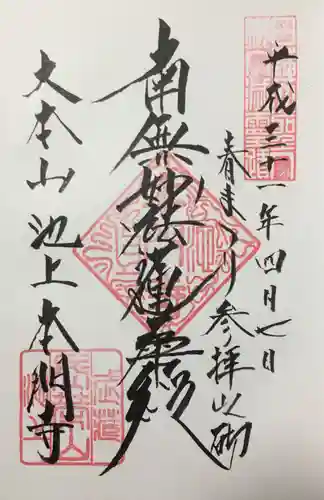 平成三十一年四月七日
春まつり参拝之砌
南無妙法蓮華経
大本山池上本門寺